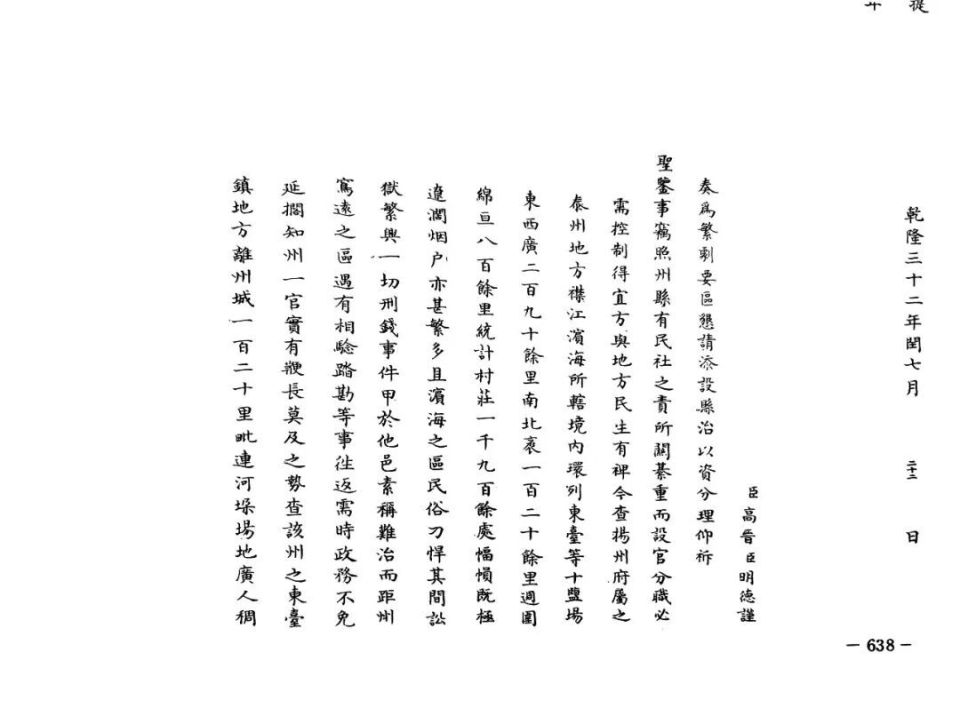 提
乾隆三十二年閏七月 二十二 日
臣高晉臣明德謹
奏爲繁劇要區懇請添設縣治以資分理仰祈
聖鑒事竊照州縣有民社之責所關綦重而設官分職必
需控制得宜方與地方民生有裨今查揚州府屬之
泰州地方襟江濱海所轄境内環列東臺等十鹽場
東西廣二百九十餘里南北袤一百二十餘里週圍
綿亘八百餘里統計村莊一千九百餘處幅慣既極
遼濶烟户亦甚繁多且濱海之區民俗刁悍其間訟
獄繁興一切刑錢事件甲於他邑素稱難治而距州
寫遠之區遇有相驗踏勘等事徃返需時政務不免
延擱知州一官實有鞭長莫及之勢查該州之東臺
鎮地方離州城一百二十里毗連河垛場地廣人稠
— 638 —